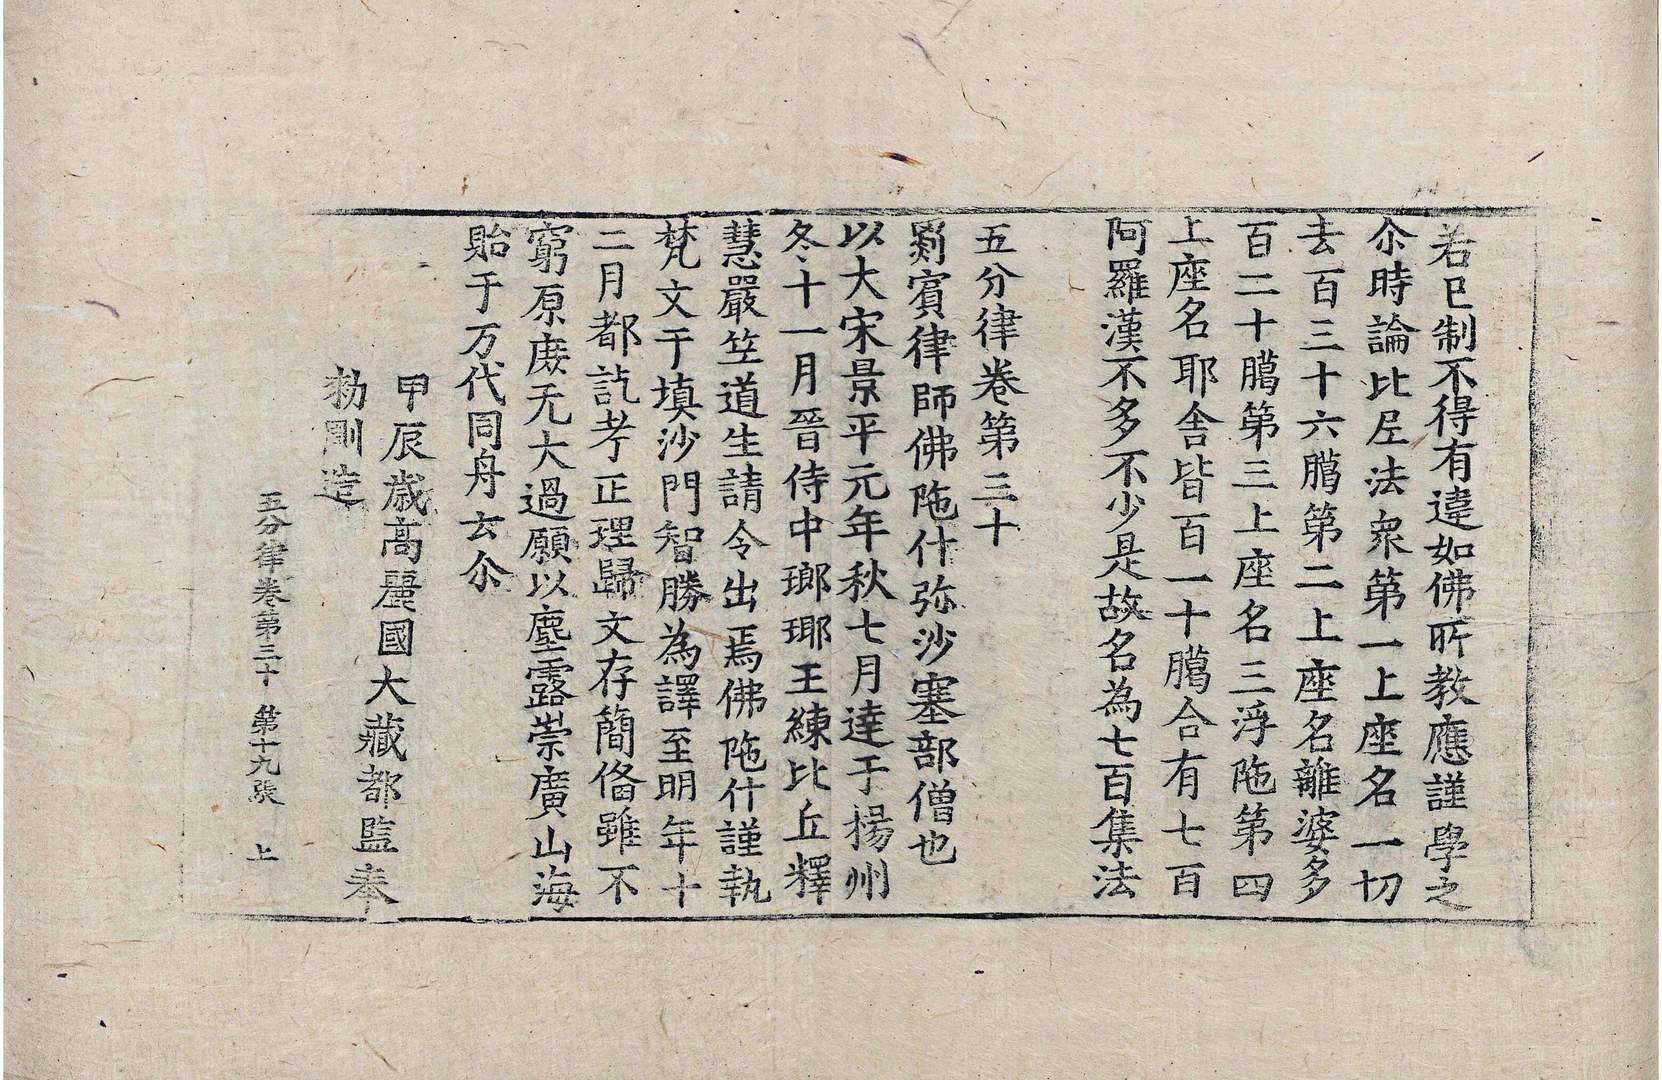 若已制不得有違如佛所教應謹學之
尒時論比𡰱法衆第一上座名一切
去百三十六﨟第二上座名離婆多
百二十﨟第三上座名三浮陁第四
上座名耶舍皆百一十﨟合有七百
阿羅漢不多不少是故名為七百集法
五分律卷第三十
罽賔律師佛陁什弥沙塞部僧也
以大宋景平元年秋七月達于楊州
冬十一月晉侍中瑯瑘王練比丘釋
慧嚴笁道生請令出焉佛陁什謹執
梵文于填沙門智勝為譯至明年十
二月都訖考正理歸文存簡俻雖不
窮原庻无大過願以塵露崇廣山海
貽于万代同舟玄尒
甲辰歳高麗國大藏都監奉
勑剛造
五分律卷第三十 第十九張 上